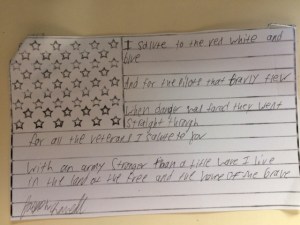 I salute to the red white and
blue
And for the Pilots that bravly flew
When danger was faced they went
straight through
for all the veterans I salute to you
With an army stronger than a little wore I live
in the land of the free and the home of the brave